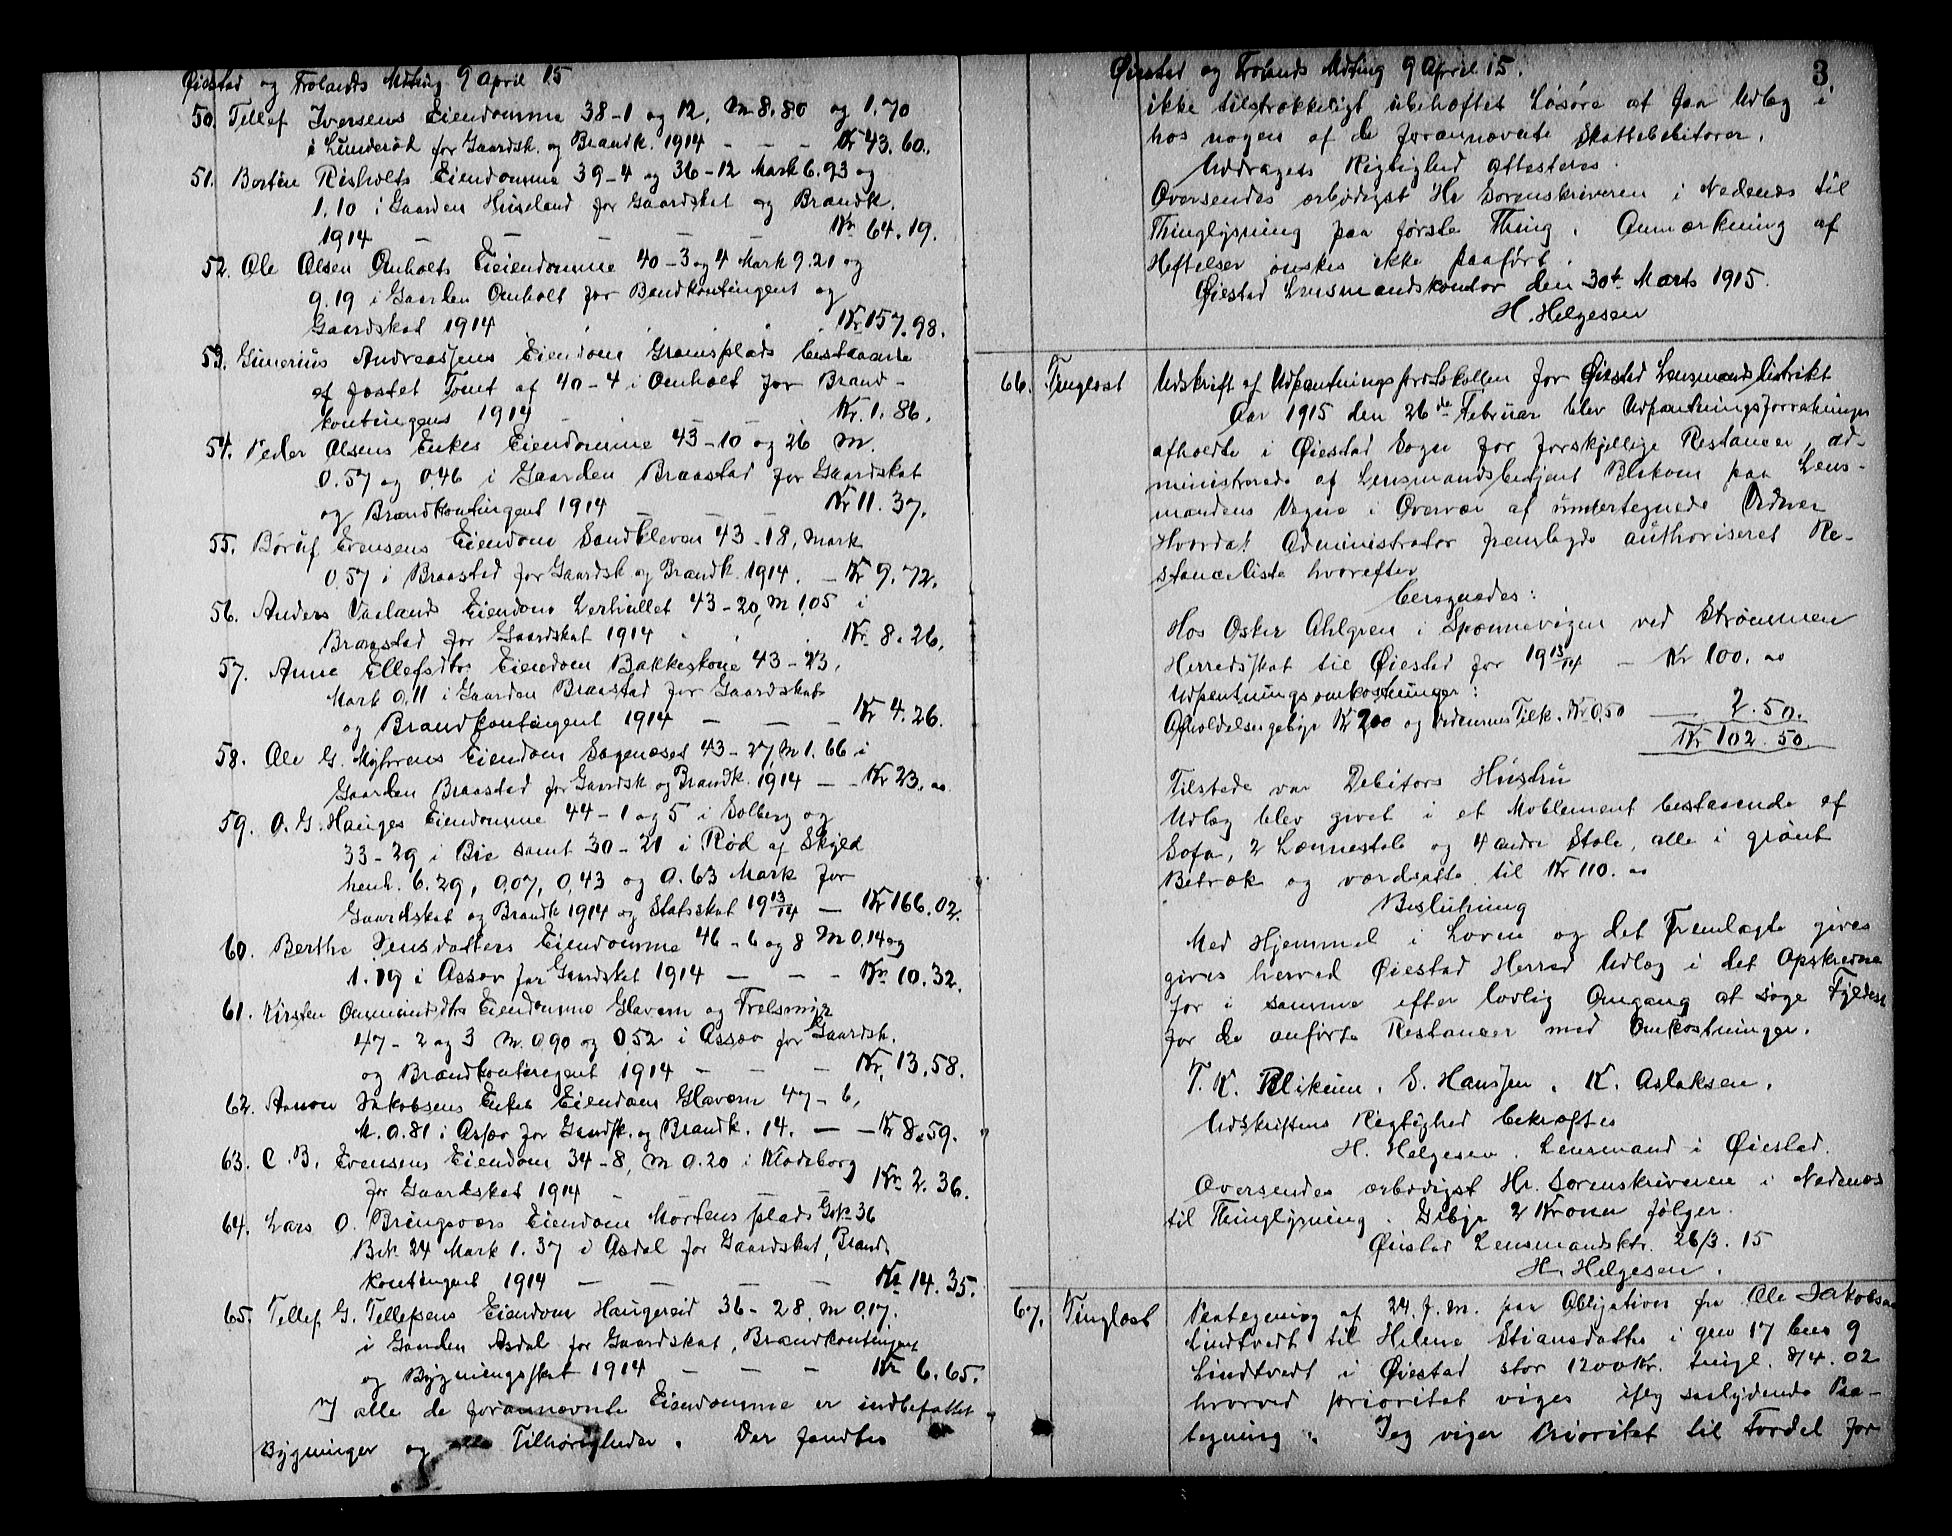 Øiestad og Frolands Mdting 9 April 15
50. Tellef Iversens Eiendomme 38-1 og 12, M 8.80 og 1.70
i Lunderød for Gaardsk. og Brandk. 1914 - - - Kr 43.60.
51. Bertine Risholts Eiendomme 39-4 og 36-12 Mark 6.93 og
1.10 i Gaarden Huseland for Gaardskat og Brandk.
1914 - - - - Kr 64.19.
52. Ole Olsen Omholts Eiendomme 40-3 og 4 Mark 9.21 og
9.19 i Gaarden Omholt for Bandkontingent og
Gaardskat 1914 . . . . Kr 157.98.
53. Gunerius Andreassens Eiendom Gromsplads bestaaende
af fæstet Tomt af 40-4 i Omholt for Brand-
kontingens 1914 - - - Kr. 1.86.
54. Peder Olsens Enkes Eiendomme 43-10 og 26 M.
0.57 og 0.46 i Gaarden Braastad for Gaardskat
og Brandkontingent 1914 - - - Kr 11.37.
55. Børuf Evensens Eiendom Sandkleven 43-18, Mark
0.57 i Braastad for Gaardsk og Brandk. 1914. - Kr 9.72.
56. Anders Vaelands Eiendom Lerhullet 43-20, M 1.05 i
Braastad for Gaardskat 1914 . . . Kr. 8.26.
57. Anne Ellefsdtrs Eiendom Bakkestøne 43-23,
Mark 0.11 i Gaarden Braastad for Gaardskat
og Brandkontingent 1914 - - - Kr 4.26.
58. Ole G. Myhrens Eiendom Sagenæset 43-27, M 1.66 i
Gaarden Braastad for Gaardsk og Brandk. 1914 - - Kr 23.00.
59. O. G. Hauges Eiendomme 44-1 og 5 i Solberg og
33-29 i Bie samt 30-21 i Rød af Skyld
henh. 6.29, 0,07, 0,43 og 0.63 Mark for
Gaardskat og Brandk 1914 og Statsskat 19 13/14 - Kr 166.02.
60. Berthe Jensdatters Eiendomme 46-6 og 8 M 0.14 og
1.19 i Assev for Gaardskat 1914 - - - Kr 10.32.
61. Kirsten Aamundsdtrs Eiendomme Glavern og Trelsmyr
47-2 og 3 M. 0.90 og 0.52 i Assev for Gaardsk.
og Brandkontingent 1914 - - - Kr. 13.58.
62. Aanon Jakobsens Enkes Eiendom Glavern 47-6,
M. 0.81 i Assev for Gaardsk. og Brandk. 14. - - Kr 8.59.
63. C. B. Evensens Eiendom 34-8, M 0.20 i Klodeborg
for Gaardskat 1914 - - - Kr. 2.36.
64. Lars O. Bringsværs Eiendom Mortensplads Gno 36
Bno. 24 Mark 1.37 i Asdal for Gaardskat, Brand-
kontingent 1914 - - - - Kr 14.35.
65. Tellef G. Tellefsens Eiendom Haugereid 36-28, M 0.17.
i Gaarden Asdal for Gaardskat, Brandkontingent
og Bygningsskat 1914 - - - Kr 6.65.
I alle de forannævnte Eiendomme er indbefattet
Bygninger og alle Tilhørigheder. Der fandtes
Øiestad og Frolands Mdting 9 April 15.
3
ikke tilstrækkeligt ubehæftet Løsøre at faa Udlæg i
hos nogen af de forannævnte Skattedebitorer.
Uddragets Rigtighed attesteres.
Oversendes ærbødigst Hr Sorenskriveren i Nedenæs til
Thinglysning paa første Thing. Anmærkning af
Heftelser ønskes ikke paaført.
Øiestad Lensmandskontor den 30te Marts 1915.
H. Helgesen
66. Tinglæst Udskrift af Udpantningsprotokollen for Øiestad Lensmandsdistrikt
Aar 1915 den 26de Februar blev Udpantningsforretninger
afholdte i Øiestad Sogn for forskjellige Restancer, ad-
ministrerede af Lensmandsbetjent Blikom paa Lens-
mandens Vegne i Overvær af undertegnede Vidner
Hvorda: Administrator fremlagde authoriseret Re-
stanceliste hvorefter
beregnedes:
Hos Oskar Ahlgren i Spænnevigen ved Strømmen
Herredsskat til Øiestad for 19 13/14 - Kr 100.00
Udpantningsomkostninger:
Afholdelsesgebyr Kr 2.00 og Vidnernes Tilk. Kr 0.50 - 2.50.
Kr 102.50
Tilstede var Debitors Hustru
Udlæg blev givet i et Moblement bestaaende af
Sofa, 2 Lænestole og 4 andre Stole, alle i grønt
Betræk og værdsatte til Kr 110.00
Beslutning
Med Hjemmel i Loven og det Fremlagte gives
gives herved Øiestad Herred Udlæg i det Opskrevne
for i samme efter lovlig Omgang at søge Fyldest
for de anførte Restancer med Omkostninger.
T. K. Blikom. S. Hanssen. K. Aslaksen.
Udskriftens Rigtighed bekræftes
H. Helgesen. Lensmand i Øiestad.
Oversendes ærbødigst Hr. Sorenskriveren i Nedenæs
til Thinglysning. Gebyr 2 Kroner følger.
Øiestad Lensmandsktr. 26/3. 15
H. Helgesen.
67. Tinglæst Paategning af 24. f. m. paa Obligation fra Ole Jakobsen
Lindtvedt til Helene Stiansdatter i gno 17 bno 9
Lindtvedt i Øiestad stor 1200 Kr. tingl. 8/4. 02
hvorved prioritet viges iflg saalydende Paa-
tegning: Jeg viger Prioritet til Fordel for